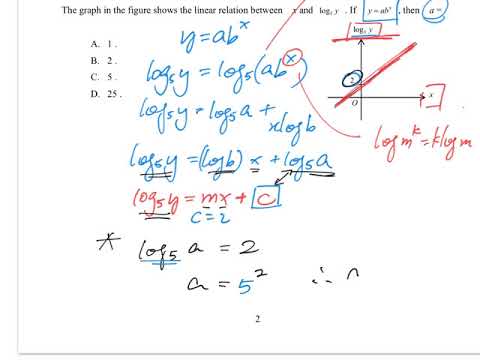 The graph in the figure shows the linear relation between x and log₅ y . If y = abˣ , then a =
A. 1 .
B. 2 .
C. 5 .
D. 25 .
y = abˣ
log₅y = log₅(abˣ)
log₅y = log₅a +
xlogb
log₅y = (logb) x + log₅a
log₅y = mx + c
c = 2
* log₅ a = 2
a = 5²
∴
log₅ y
2
O
x
log mᵏ = klog m
2